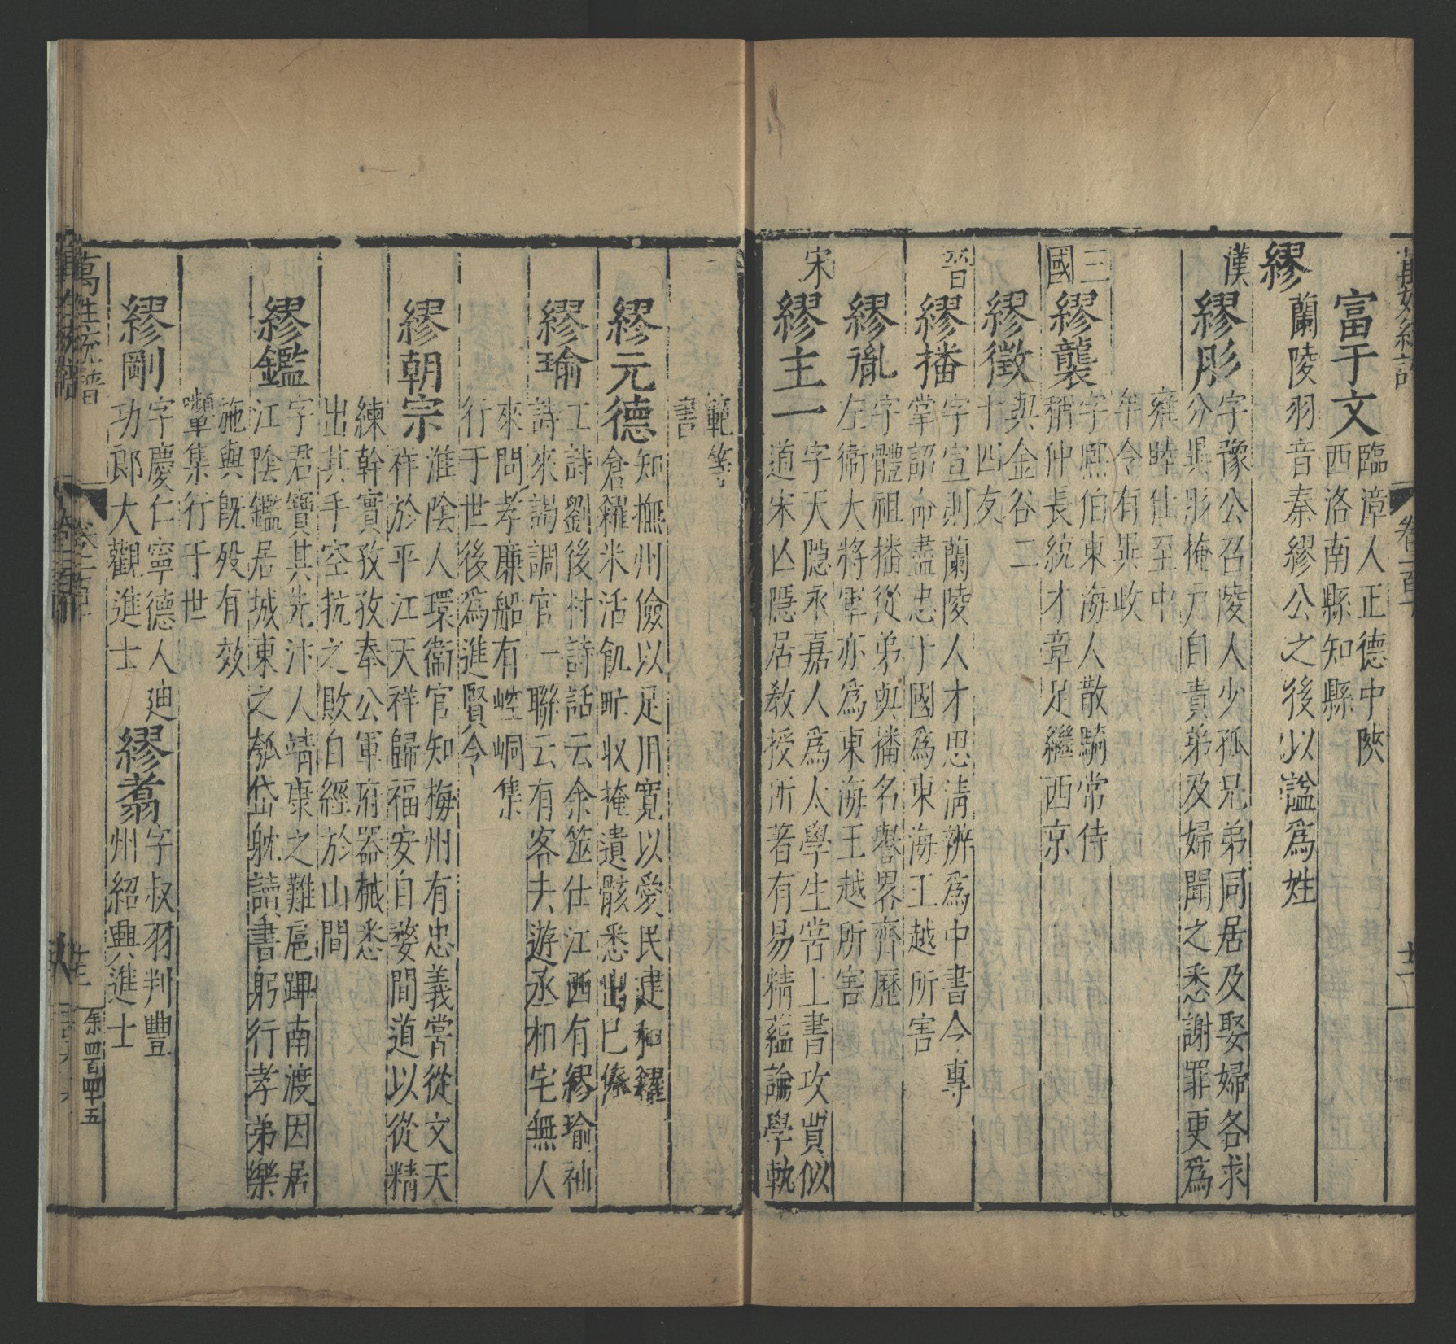 富于文
臨漳人正德中陝
西洛南縣知縣
繆
蘭陵羽音秦繆公之後以謚爲姓
漢
繆肜
字豫公召陵人少孤兄弟同居及娶婦各求
分異肜掩戸自責弟及婦聞之悉謝罪更爲
雍睦仕至中
牟令有異政
三國
繆襲
字熙伯東海人散騎常侍
稱仲長統才章足繼西京
繆徵
與金谷二
十四友
晉
繆播
字宣則蘭陵人才思清辨爲中書令專
掌詔命盡忠于國爲東海王越所害
繆胤
字體祖播從弟與播名譽畧齊歷
左衛大將軍亦爲東海王越所害
宋
繆主一
字天隱永嘉人爲太學生嘗上書攻賈似
道宋亾隱居教授所著有易精蘊論學軌
範等
書
繆元德
知撫州儉以足用寬以愛民建和糴
倉糴米活飢氓收掩遺骸悉出已俸
繆瑜
工詩劉後村詩話云余筮仕江西有繆瑜袖
詩來謁調官一聯云有客去遊丞相宅無人
來問孝廉船有崆峒集
行于世後爲進賢令
繆朝宗
淮陰人環衛官知梅州有忠義嘗從文天
祥於平江天祥歸福安自婺間道以從精
練幹實孜孜奉公軍府器械悉
出其手空抗之敗自經於山間
繆鑑
字君寶其先汴人靖康之難扈蹕南渡因居
江陰鑑居城東之瓠岱躭讀書躬行孝弟樂
施與旣殁有效
顰集行于世
繆剛
字慶仁寧德人廸
功郎大觀進士
繆翥
字叔羽判豐
州紹興進士
萬姓統譜